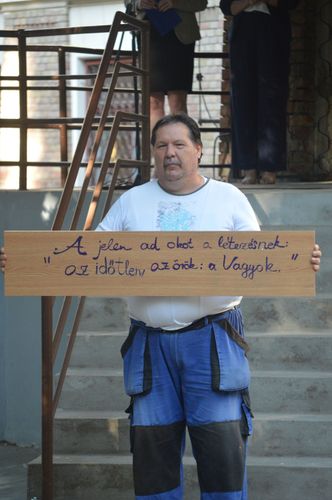 "A jelen ad okot a létezésnek:
az időtlen, az örök: a Vagyok."